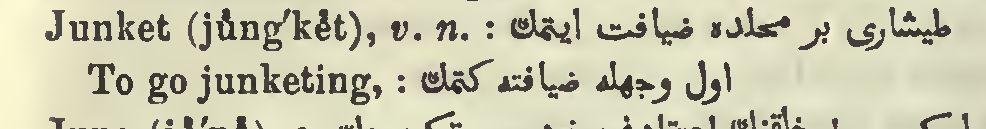 Junket (jŭng′kĕt), v. n. : طیشاری بر محلده ضیافت ایتمك
To go junketing, : اول وجهله ضیافته كتمك